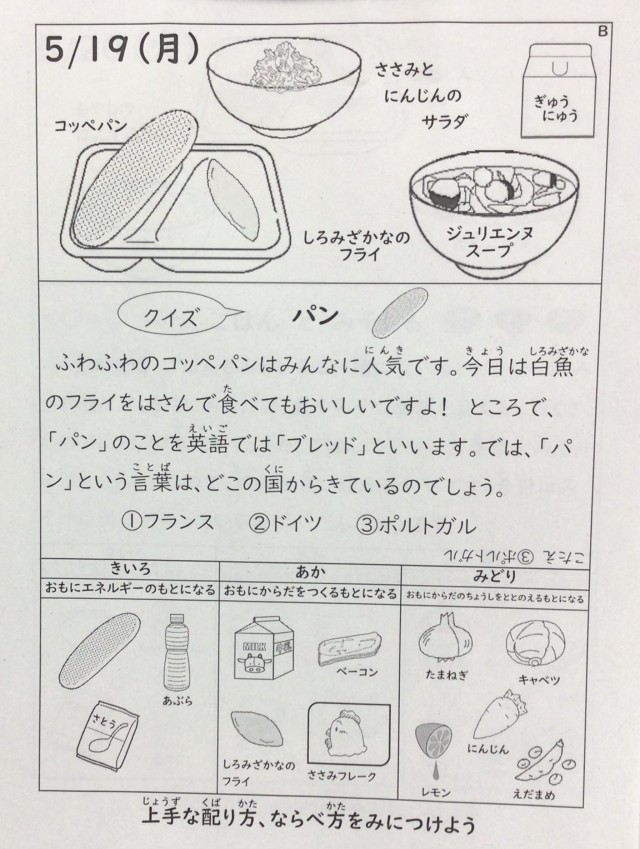 B
5/19(月)
ささみと
にんじんの
サラダ
ぎゅう
にゅう
コッペパン
しろみざかなの
フライ
ジュリエンヌ
スープ
クイズ
パン
ふわふわのコッペパンはみんなに人気です。今日は白魚
にんき きょう しろみざかな
のフライをはさんで食べてもおいしいですよ! ところで、
た
「パン」のことを英語では「ブレッド」といいます。では、「パ
えいご
ン」という言葉は、どこの国からきているのでしょう。
ことば くに
①フランス ②ドイツ ③ポルトガル
こたえ ③ポルトガル
きいろ
おもにエネルギーのもとになる
あぶら
さとう
あか
おもにからだをつくるもとになる
MILK
牛乳
ベーコン
しろみざかなの
フライ
ささみフレーク
みどり
おもにからだのちょうしをととのえるもとになる
たまねぎ
キャベツ
にんじん
レモン
えだまめ
上手な配り方、ならべ方をみにつけよう
じょうず くば かた かた